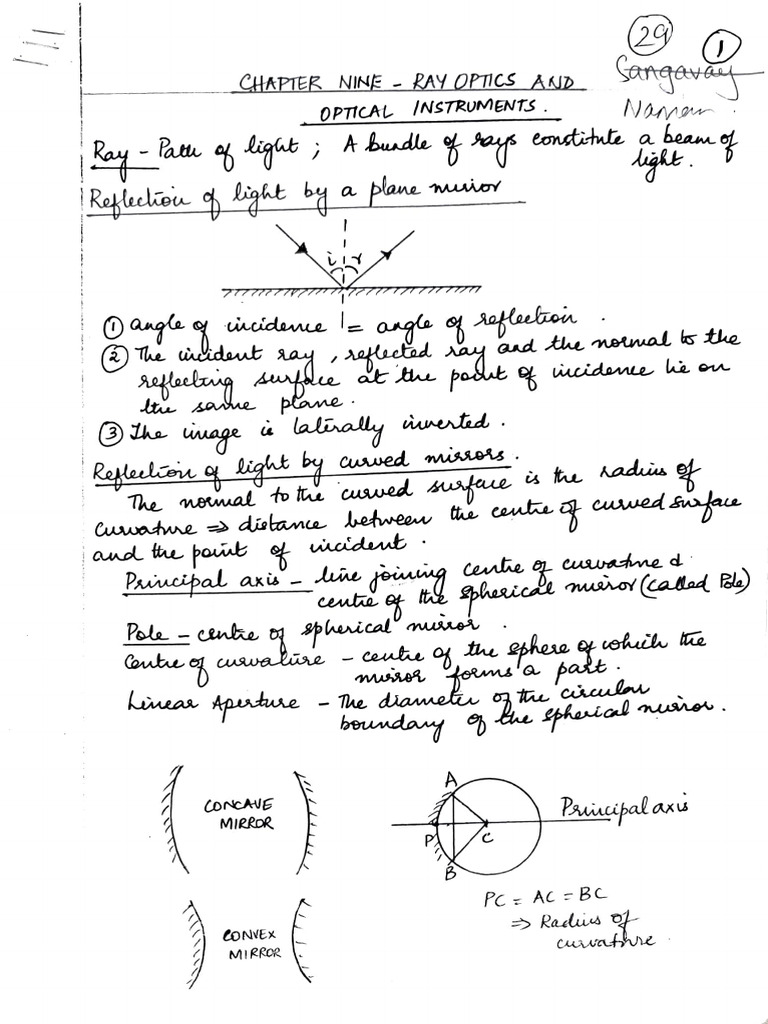 29
1
Sangavay
Naman
CHAPTER NINE - RAY OPTICS AND
OPTICAL INSTRUMENTS.
Ray - Path of light ; A bundle of rays constitute a beam of
light.
Reflection of light by a plane mirror
i r
① angle of incidence = angle of reflection .
② The incident ray , reflected ray and the normal to the
reflecting surface at the point of incidence lie on
the same plane .
③ The image is laterally inverted .
Reflection of light by curved mirrors.
The normal to the curved surface is the radius of
curvature ⇒ distance between the centre of curved surface
and the point of incident .
Principal axis - line joining centre of curvature &
centre of the spherical mirror (called Pole)
Pole - centre of spherical mirror .
Centre of curvature - centre of the sphere of which the
mirror forms a part .
Linear Aperture - The diameter of the circular
boundary of the spherical mirror.
CONCAVE
MIRROR
A
Principal axis
P
C
B
CONVEX
MIRROR
PC = AC = BC
⇒ Radius of
curvature.